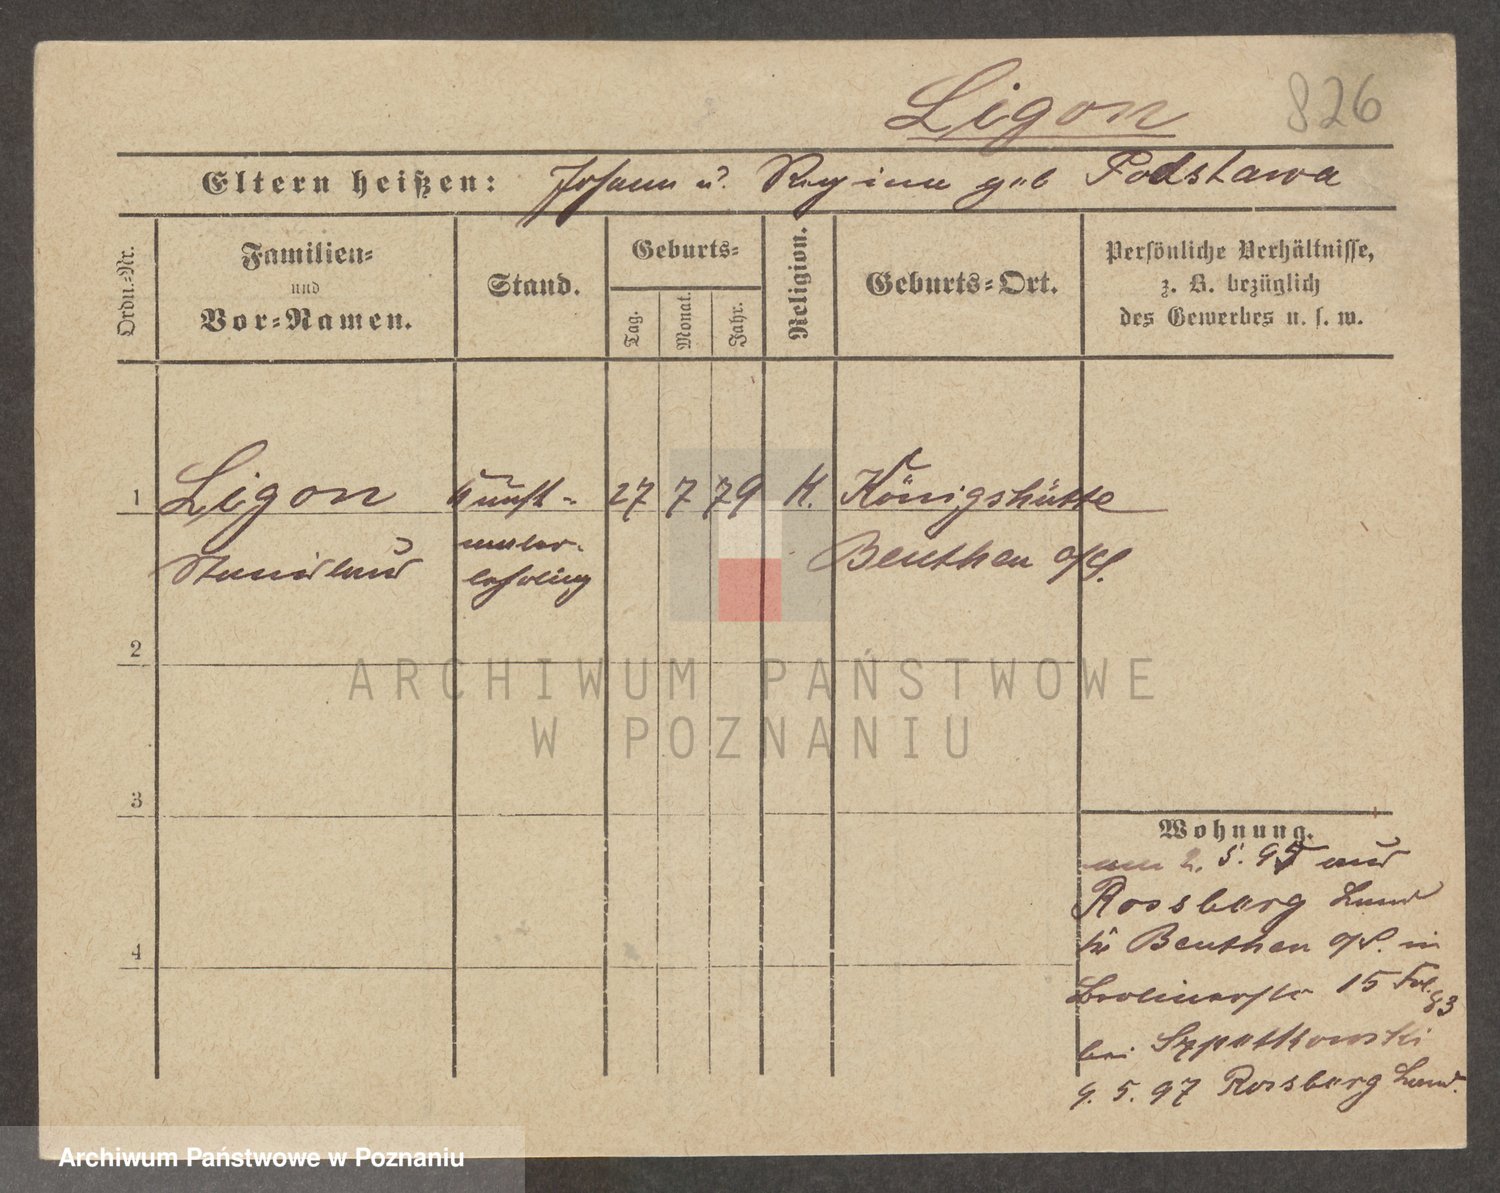 Ligon 826
Eltern heißen: Johann u. Regina geb Podstawa
Ordn.=Nr.
Familien=
und
Vor=Namen.
Stand.
Geburts=
Tag.
Monat.
Jahr.
Religion.
Geburts=Ort.
Persönliche Verhältnisse,
z. B. bezüglich
des Gewerbes u. s. w.
1 Ligon Kunst= 27 7 79 K. Königshütte
Stanislaus maler- Beuthen o/S.
lehrling
2
ARCHIWUM PAŃSTWOWE
W POZNANIU
3
Wohnung.
am 2. 5. 95 aus
Rossberg
Beuthen o/S. in
Berlinerstr 15 Fol. 83
bei Szpatkowski
9. 5. 97 Rossberg
4
Archiwum Państwowe w Poznaniu